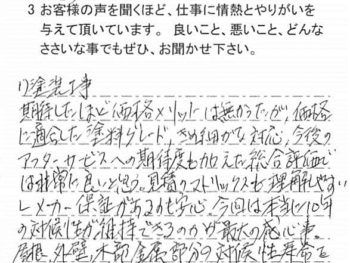 3 お客様の声を聞くほど、仕事に情熱とやりがいを
与えて頂いています。 良いこと、悪いこと、どんな
ささいな事でもぜひ、お聞かせ下さい。
1)塗装工事
期待したほど価格メリットは無かったが、価格
に適合した塗料グレード、きめ細かな対応、今後の
アフターサービスへの期待度も加えた総合評価で
は非常に良いと思う。見積のストリックスも理解しやすい
し、メーカー保証があるのも安心。今回は本当に10年
の対候性が維持できるのかが最大の感心事。
屋根、外壁、木部、金属部分の対候性寿命を